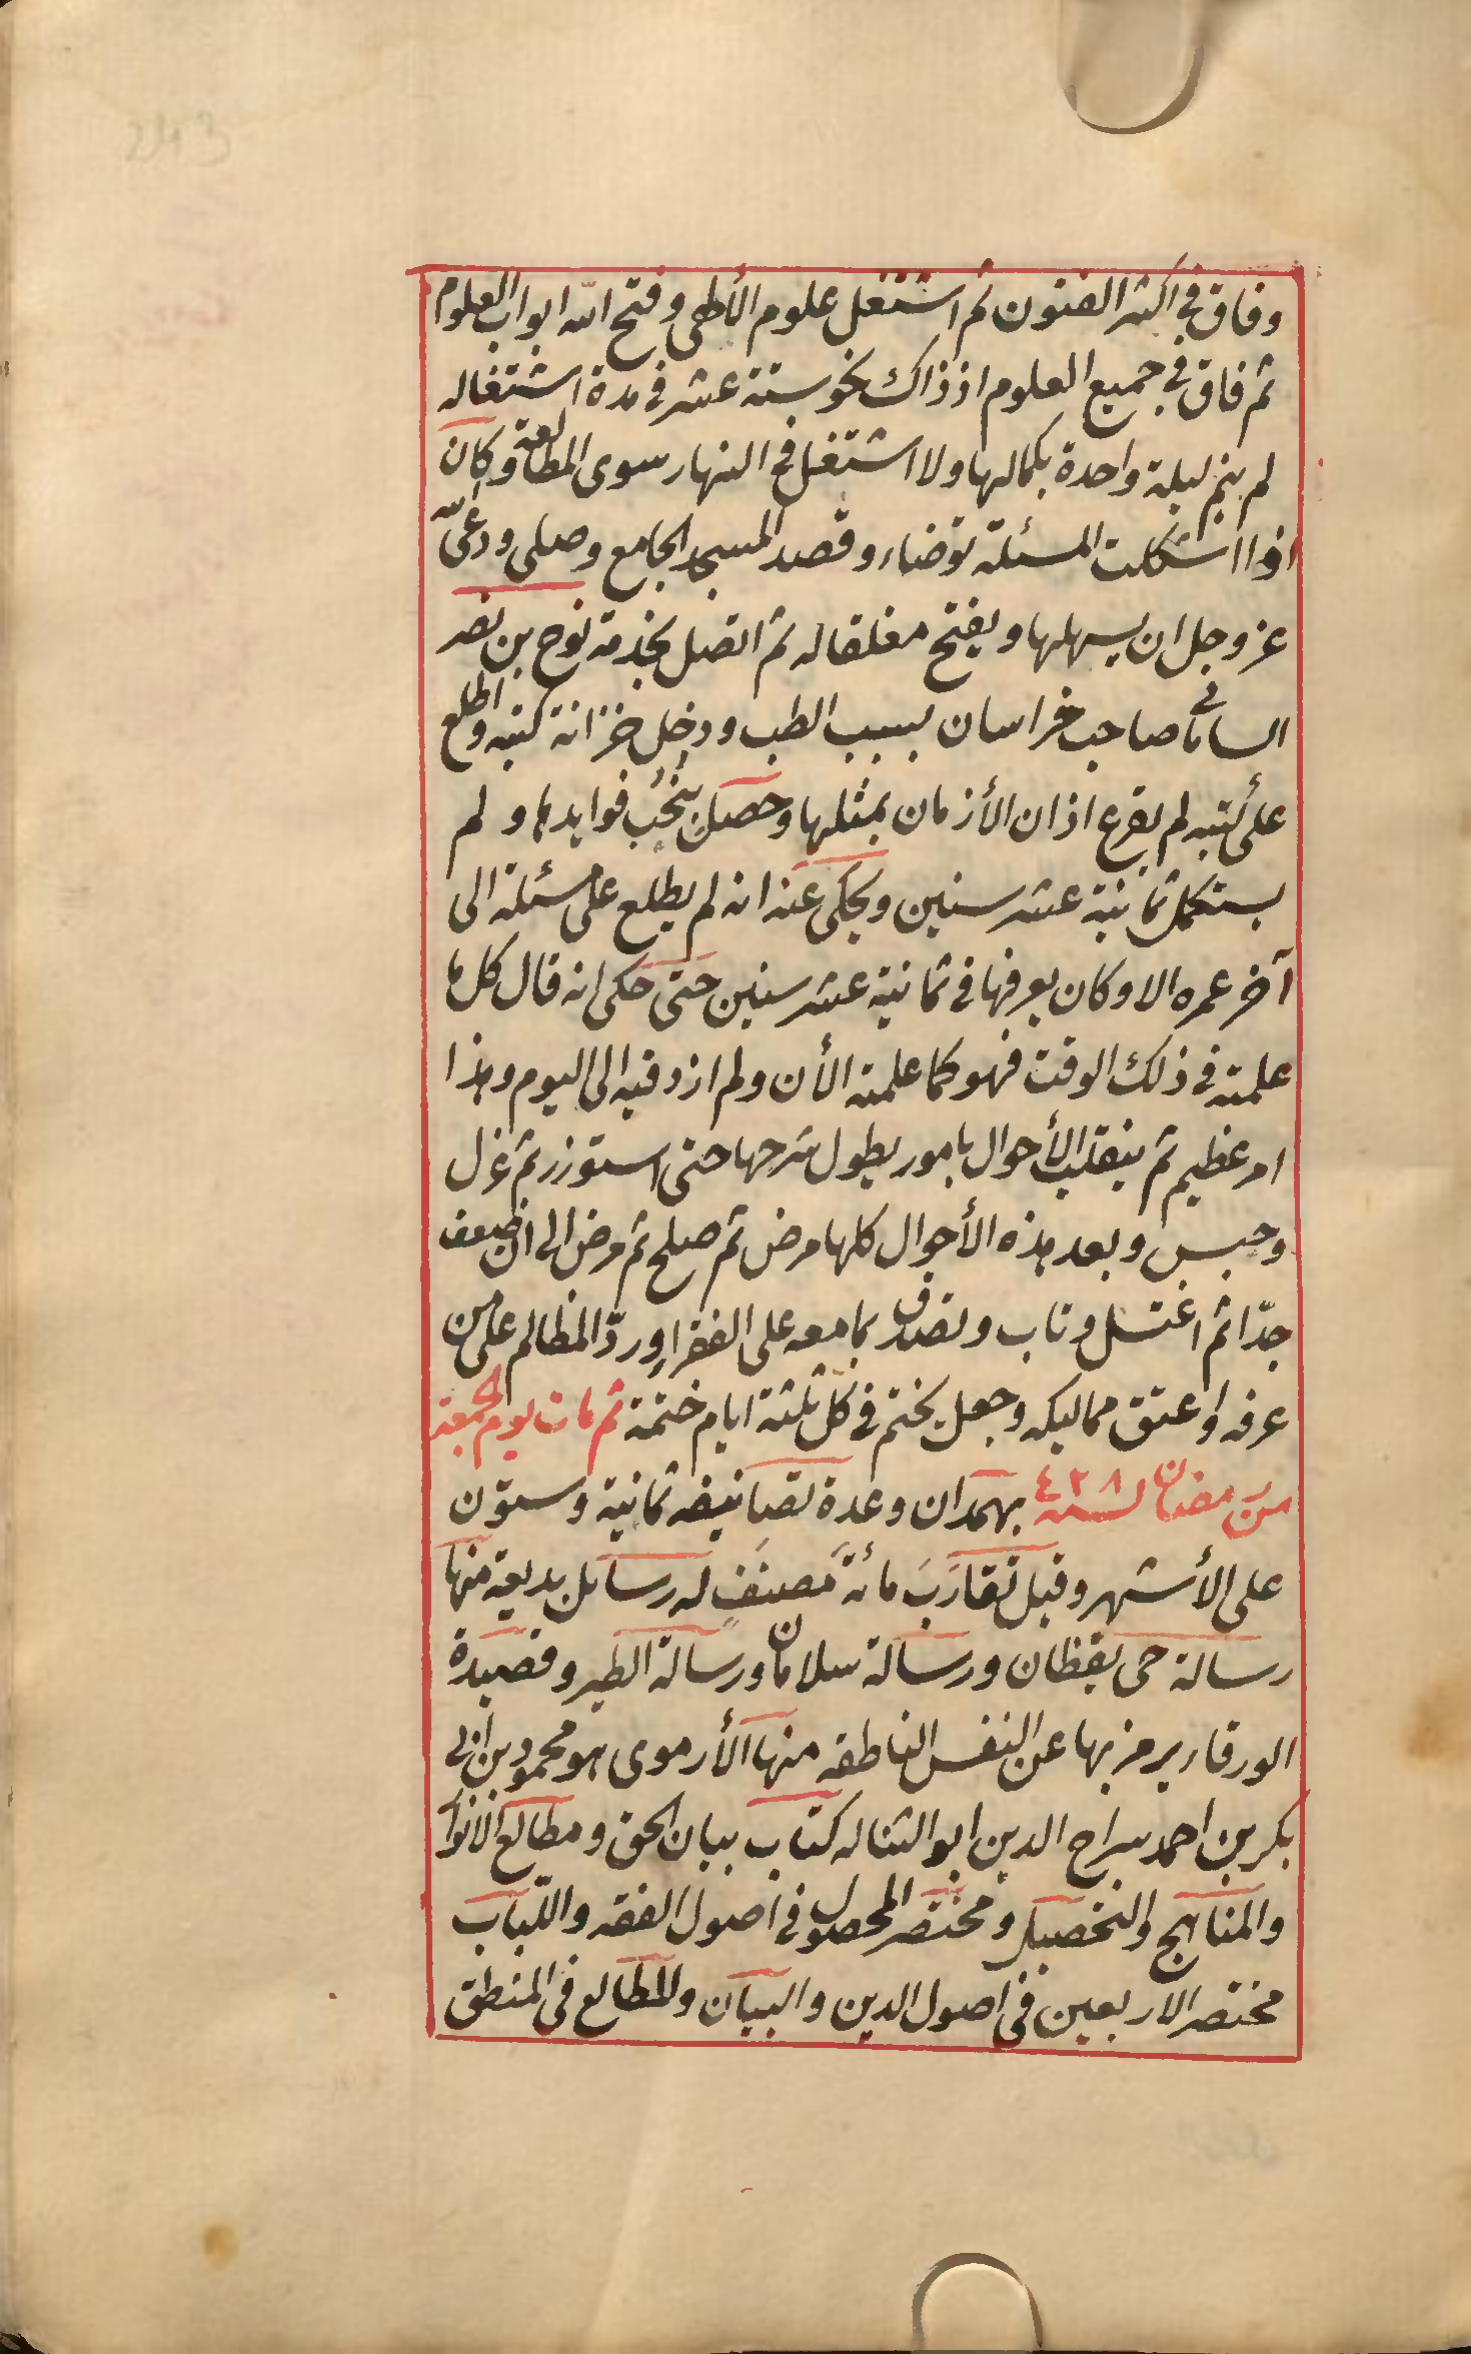 243
وفاق في اكثر الفنون ثم اشتغل علوم الألهى وفتح الله ابواب العلوم
ثم فاق في جميع العلوم اذ ذاك نحو ستة عشر في مدة اشتغاله
لم ينم ليلة واحدة بكمالها ولا اشتغل في النهار سوى المطالعة وكان
اذا اشكلت المسئلة توضاء وقصد المسجد الجامع وصلى ودعى الله
عز وجل ان يسهلها ويفتح مغلقا له ثم اتصل بخدمة نوح بن نصر
السامانى صاحب خراسان بسبب الطب ودخل خزانة كتبه واطلع
على كتبه لم يقرع اذان الأزمان بمثلها وحصل نُخَب فوايدها ولم
يستكمل ثمانية عشر سنين ويحكى عنه انه لم يطلع على مسئلة الى
آخر عمره الا وكان يعرفها في ثمانية عشر سنين حتى حكى انه قال كل ما
علمته في ذلك الوقت فهو كما علمته الأن ولم ازد فيه الى اليوم وهذا
امر عظيم ثم ينقلب الأحوال بامور يطول شرحها حتى استوزر ثم عزل
وحبس وبعد هذه الأحوال كلها مرض ثم صلح ثم مرض الى ان ضعف
جدّا ثم اغتسل وتاب وتصدق بما معه على الفقراء ورد المظالم على من
عرفه واعتق مماليكه وجعل يختم في كل ثلثة ايام ختمة ثم مات يوم الجمعة
من رمضان لسنة ٤٢٨ بهمدان وعدة تصانيفه ثمانية وستون
على الأشهر وقيل تقارَبَ مائةَ مَصنَفٍ له رسائل بديعة منها
رسالة حى يقظان ورسالة سلامان ورسالة الطير وقصيدة
الورقاء يرمز بها عن النفس الناطقه منها الأرموى هو محمود بن ابى
بكر بن احمد سراج الدين ابو الثنا له كتاب بيان الحق ومطالع الانوار
والمناهج والتحصيل ومختصر المحصول في اصول الفقه واللباب
مختصر الاربعين في اصول الدين والبيان والمطالع في المنطق